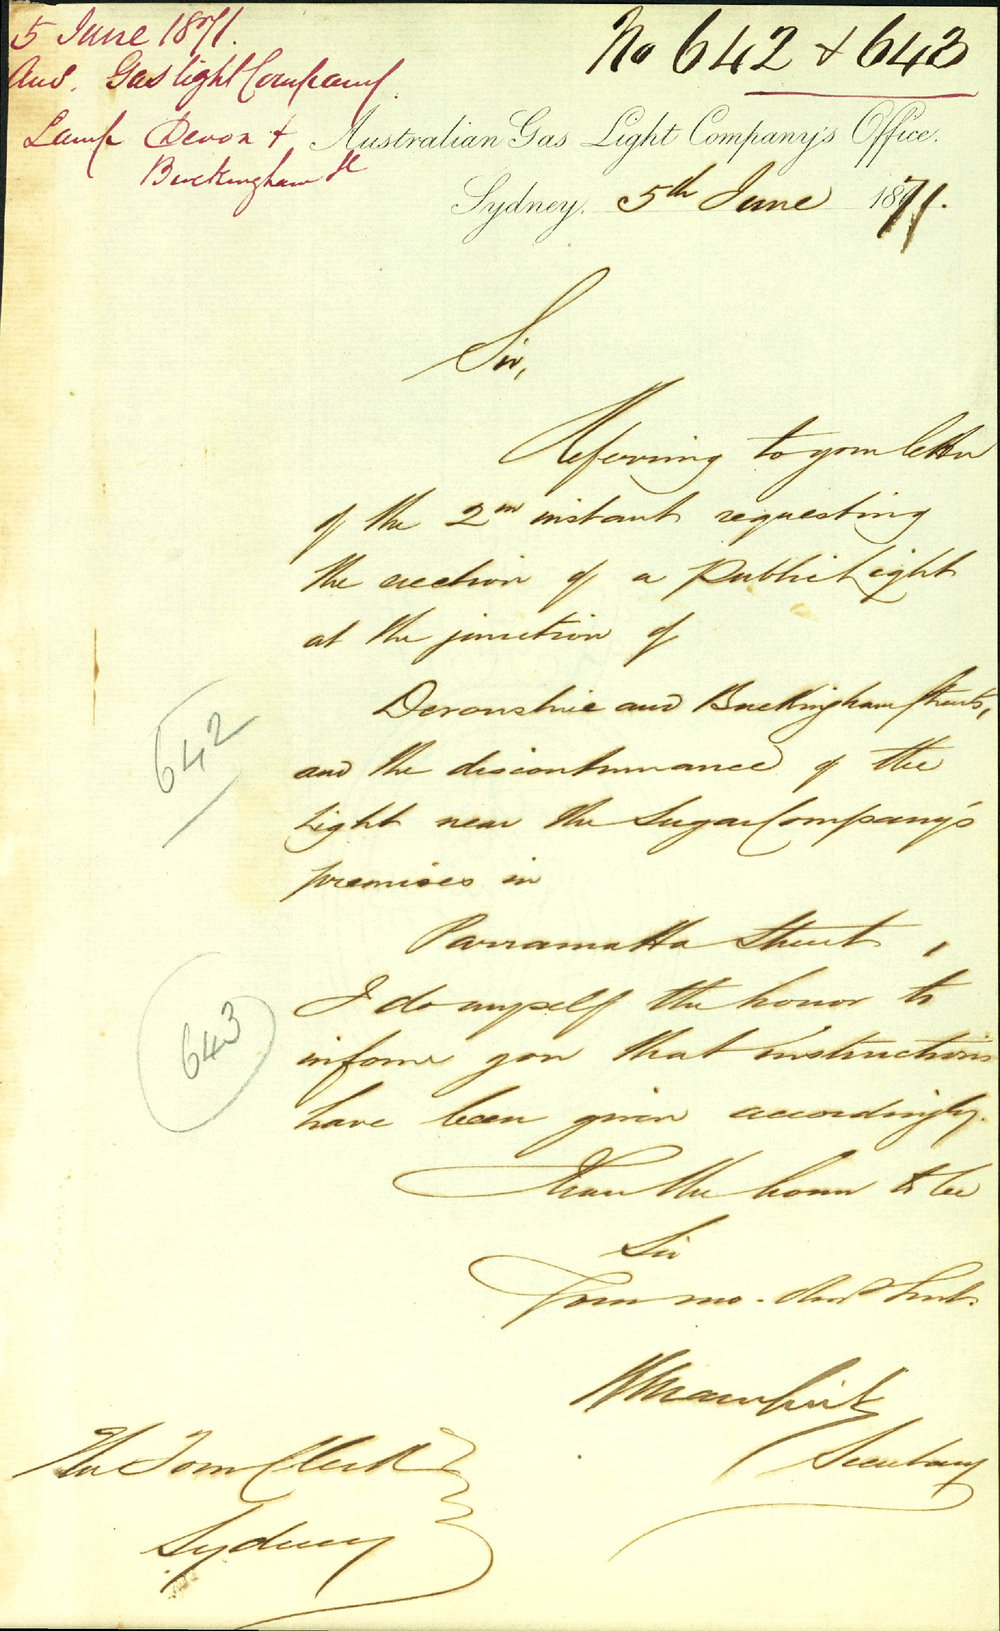 5 June 1871.
Aus. Gaslight Company.
Lamp Devon &
Buckingham St
No 642 & 643
Australian Gas Light Company's Office.
Sydney, 5th June 1871.
Sir,
Referring to your letter
of the 2nd instant requesting
the erection of a Public Light
at the junction of
Devonshire and Buckingham Streets,
and the discontinuance of the
Light near the Sugar Company's
premises in
Parramatta Street,
I do myself the honor to
inform you that instructions
have been given accordingly.
I have the honor to be
Sir
Your mo. Obdt Servt.
Secretary
The Town Clerk
Sydney
642
643